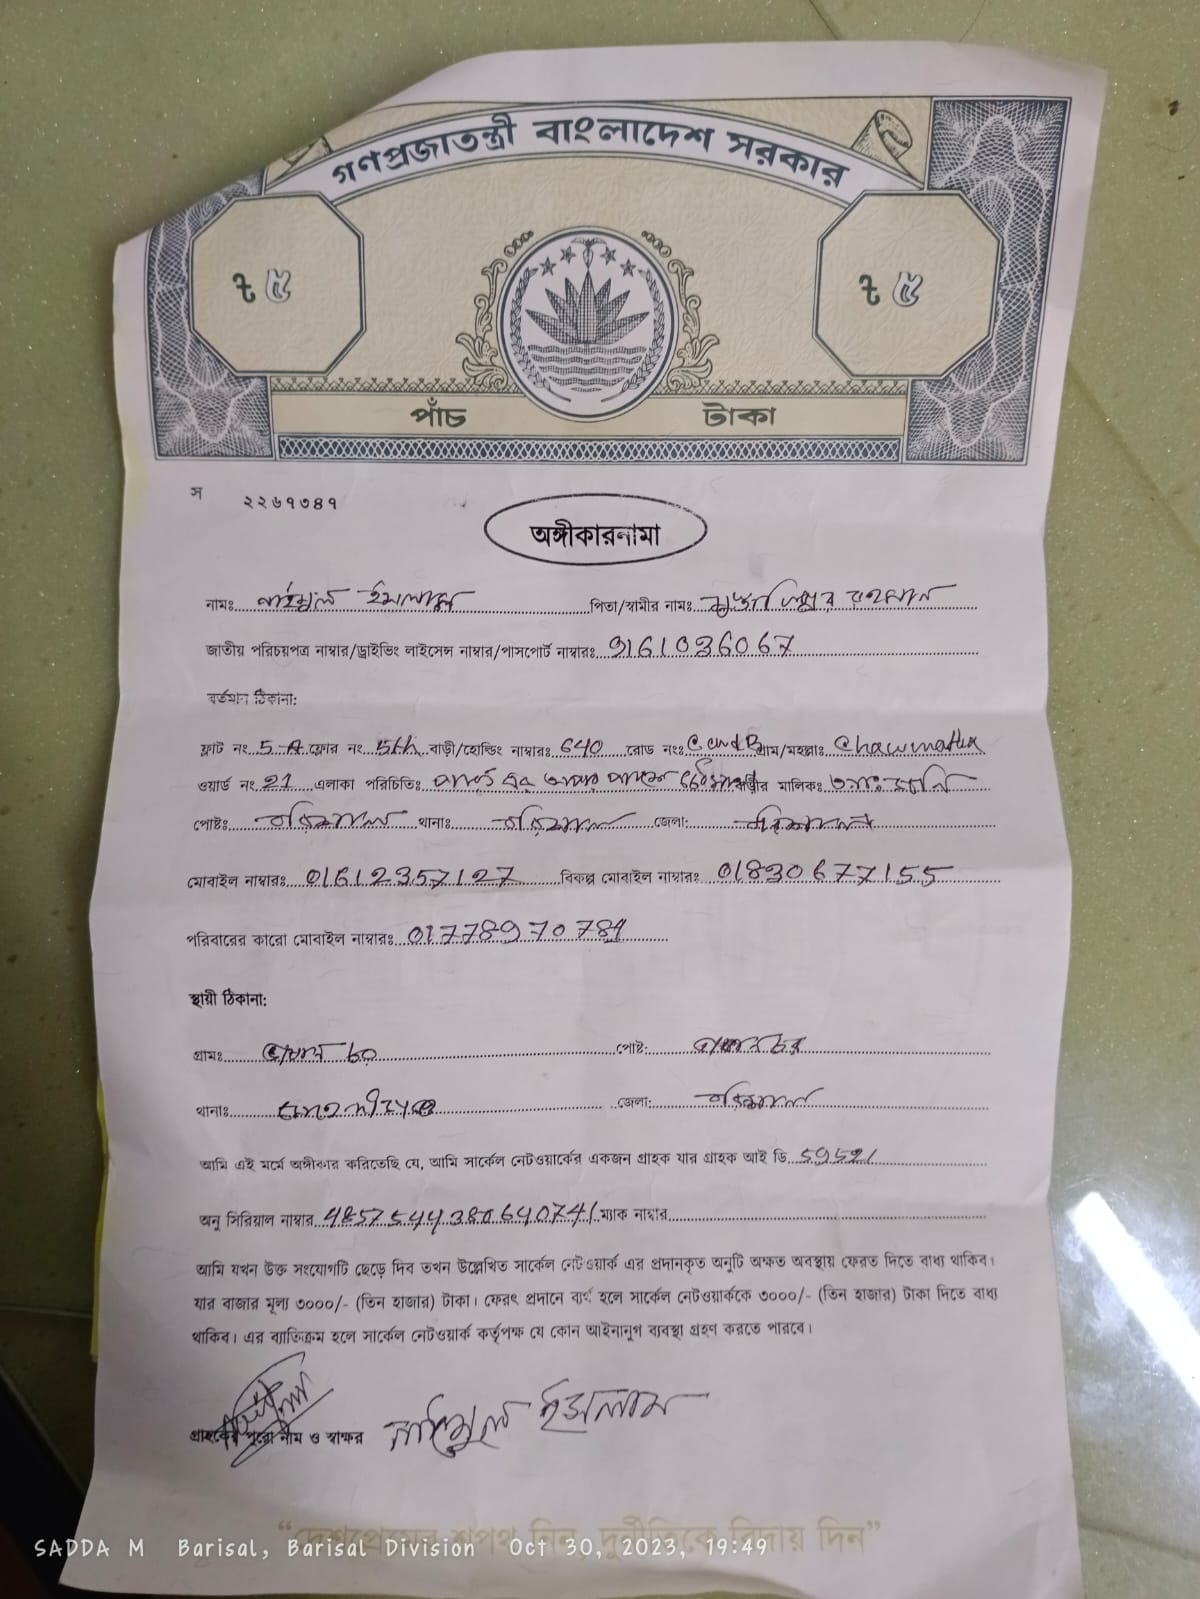 গণপ্রজাতন্ত্রী বাংলাদেশ সরকার
৳ ৫ ৳ ৫
পাঁচ টাকা
স ২২৬৭৩৪৭
অঙ্গীকারনামা
নামঃ নাইমুল ইসলাম পিতা/স্বামীর নামঃ রহমান
জাতীয় পরিচয়পত্র নাম্বার/ড্রাইভিং লাইসেন্স নাম্বার/পাসপোর্ট নাম্বারঃ 9161036067
বর্তমান ঠিকানা:
ফ্লাট নং 5-A ফ্লোর নং 5th বাড়ী/হোল্ডিং নাম্বারঃ 640 রোড নংঃ C and B গ্রাম/মহল্লাঃ
ওয়ার্ড নং 21 এলাকা পরিচিতিঃ মালিকঃ
পোষ্টঃ বরিশাল থানাঃ বরিশাল জেলা: বরিশাল
মোবাইল নাম্বারঃ 01612357127 বিকল্প মোবাইল নাম্বারঃ 01830677155
পরিবারের কারো মোবাইল নাম্বারঃ 01778970784
স্থায়ী ঠিকানা:
গ্রামঃ পোষ্ট:
থানাঃ জেলা: বরিশাল
আমি এই মর্মে অঙ্গীকার করিতেছি যে, আমি সার্কেল নেটওয়ার্কের একজন গ্রাহক যার গ্রাহক আই ডি 59521
অনু সিরিয়াল নাম্বার 4857544438064074/ ম্যাক নাম্বার
আমি যখন উক্ত সংযোগটি ছেড়ে দিব তখন উল্লেখিত সার্কেল নেটওয়ার্ক এর প্রদানকৃত অনুটি অক্ষত অবস্থায় ফেরত দিতে বাধ্য থাকিব।
যার বাজার মূল্য ৩০০০/- (তিন হাজার) টাকা। ফেরৎ প্রদানে ব্যর্থ হলে সার্কেল নেটওয়ার্ককে ৩০০০/- (তিন হাজার) টাকা দিতে বাধ্য
থাকিব। এর ব্যাতিক্রম হলে সার্কেল নেটওয়ার্ক কর্তৃপক্ষ যে কোন আইনানুগ ব্যবস্থা গ্রহণ করতে পারবে।
গ্রাহকের পুরো নাম ও স্বাক্ষর নাইমুল ইসলাম
“দেশপ্রেমের শপথ নিন, দুর্নীতিকে বিদায় দিন”
SADDA M Barisal, Barisal Division Oct 30, 2023, 19:49